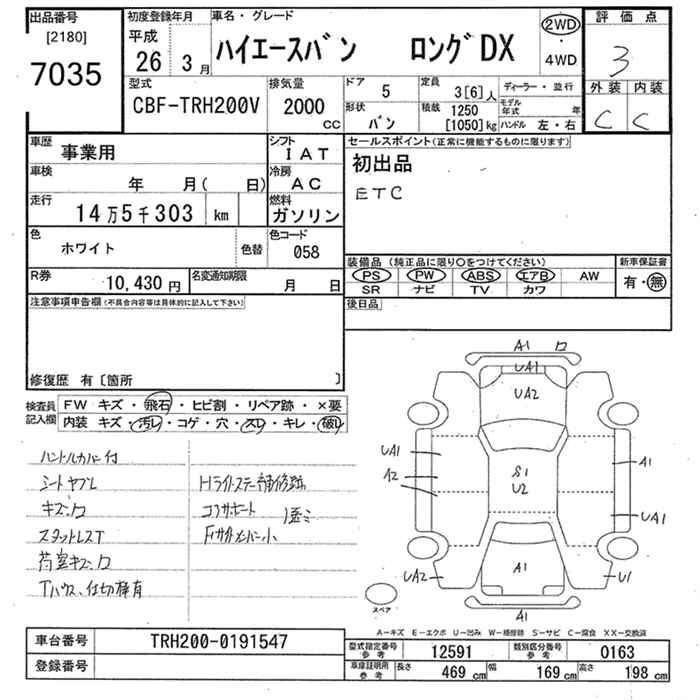 出品番号 初度登録年月 車名・グレード 評価点
[2180] 平成 2WD
7035 26年 3月 ハイエースバン ロングDX ・ 3
4WD
型式 排気量 ドア 5 定員 3[6]人 ディーラー・並行 外装 内装
CBF-TRH200V 2000 cc 形状 バン 積載 1250 [1050]kg モデル年式 年 C C
ハンドル 左・右
車歴 事業用 シフト IAT セールスポイント(正常に機能するものに限ります)
車検 年 月( 日) 冷房 AC 初出品
走行 14万5千303 km 燃料 ガソリン ETC
色 ホワイト 色替 色コード 058
装備品(純正品に限り○をつけてください) 新車保証書
R券 10,430円 名変通知期限 月 日 PS PW ABS エアB AW 有・無
SR ナビ TV カワ
注意事項申告欄(不具合内容等は具体的に記入して下さい) 後日品
修復歴 有〔箇所 〕
検査員記入欄 FW キズ・飛石・ヒビ割・リペア跡・×要
内装 キズ・汚レ・コゲ・穴・スレ・キレ・破レ
ハンドルカバー付
シートヤブレ Hライトステー補修跡
キズ、ロ
スタットレスT
荷室キズ、ロ
Tハウス、仕切棒有
A1 ロ
UA1
UA2
UA1 A1
A2 S1
U2
UA1
UA2 A1 U1
A1
スペア
A-キズ E-エクボ U-凹み W-補修跡 S-サビ C-腐食 XX-交換済
車台番号 TRH200-0191547 型式指定番号 参考 12591 類別区分番号 参考 0163
登録番号 車庫証明用 参考 長さ 469 cm 幅 169 cm 高さ 198 cm